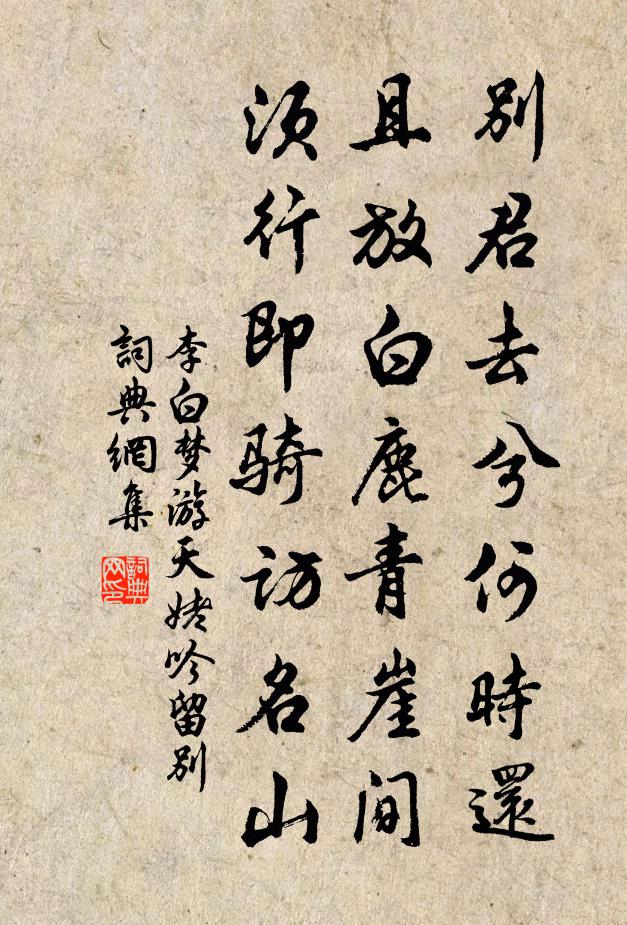 別君去兮何時還
且放白鹿青崖間
須行即騎訪名山
李白梦游天姥吟留別
詞典網集
詞典
网印